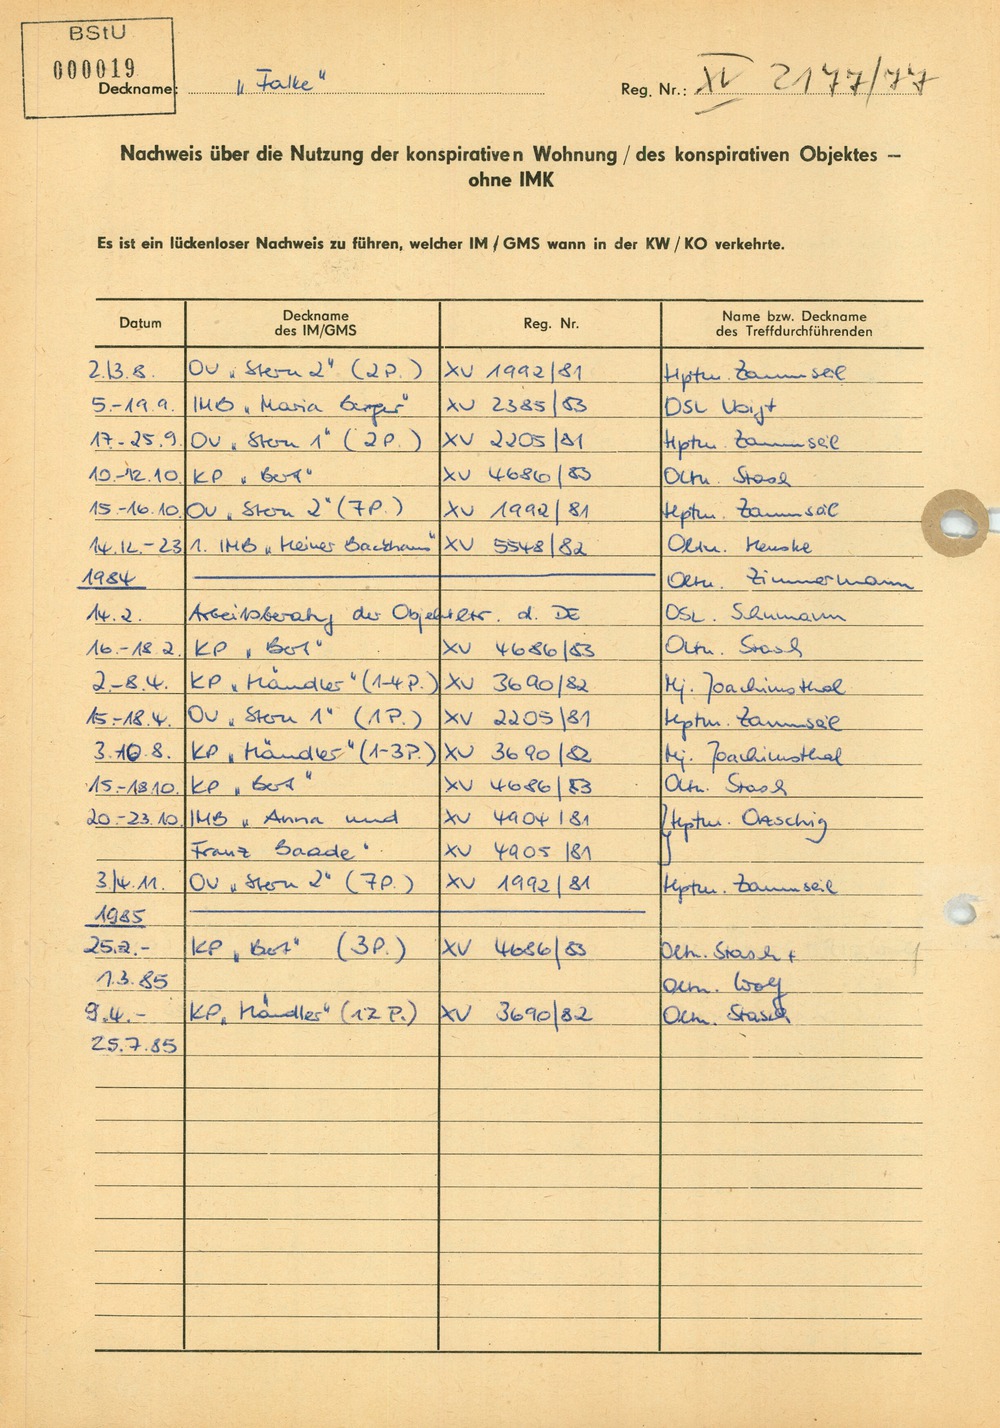 BStU
000019
Deckname: „Falke" Reg. Nr.: XV 2177/77
Nachweis über die Nutzung der konspirativen Wohnung / des konspirativen Objektes –
ohne IMK
Es ist ein lückenloser Nachweis zu führen, welcher IM / GMS wann in der KW / KO verkehrte.
Datum Deckname des IM/GMS Reg. Nr. Name bzw. Deckname des Treffdurchführenden
2./3. 8. OV „Stern 2" (2P.) XV 1992/81 Hptm. Zaumseil
5.-19.9. IMB „Maria Berger" XV 2385/83 OSL Voigt
17.-25.9. OV „Stern 1" (2P.) XV 2205/81 Hptm. Zaumseil
10.-12.10. KP „Bert" XV 4686/83 Oltn. Stasch
15.-16.10. OV „Stern 2" (7P.) XV 1992/81 Hptm. Zaumseil
14.12.-23.1. IMB „Heiner Backhaus" XV 5548/82 Oltn. Henske
1984 Oltn. Zimmermann
14.2. Arbeitsberatg der Objektltr. d. DE OSL. Schumann
16.-18.2. KP „Bert" XV 4686/83 Oltn. Stasch
2.-8.4. KP „Händler" (1-4P.) XV 3690/82 Mj. Joachimsthal
15.-18.4. OV „Stern 1" (1P.) XV 2205/81 Hptm. Zaumseil
3.-10.8. KP „Händler" (1-3P.) XV 3690/82 Mj. Joachimsthal
15.-18.10. KP „Bert" XV 4686/83 Oltn. Stasch
20.-23.10. IMB „Anna und XV 4904/81 Hptm. Orzschig
Franz Baade". XV 4905/81
3./4.11. OV „Stern 2" (7P.) XV 1992/81 Hptm. Zaumseil
1985
25.2.- KP „Bert" (3P.) XV 4686/83 Oltn. Stasch +
1.3.85 Oltn. Wolf
9.4.- KP „Händler" (12 P.) XV 3690/82 Oltn. Stasch
25.7.85